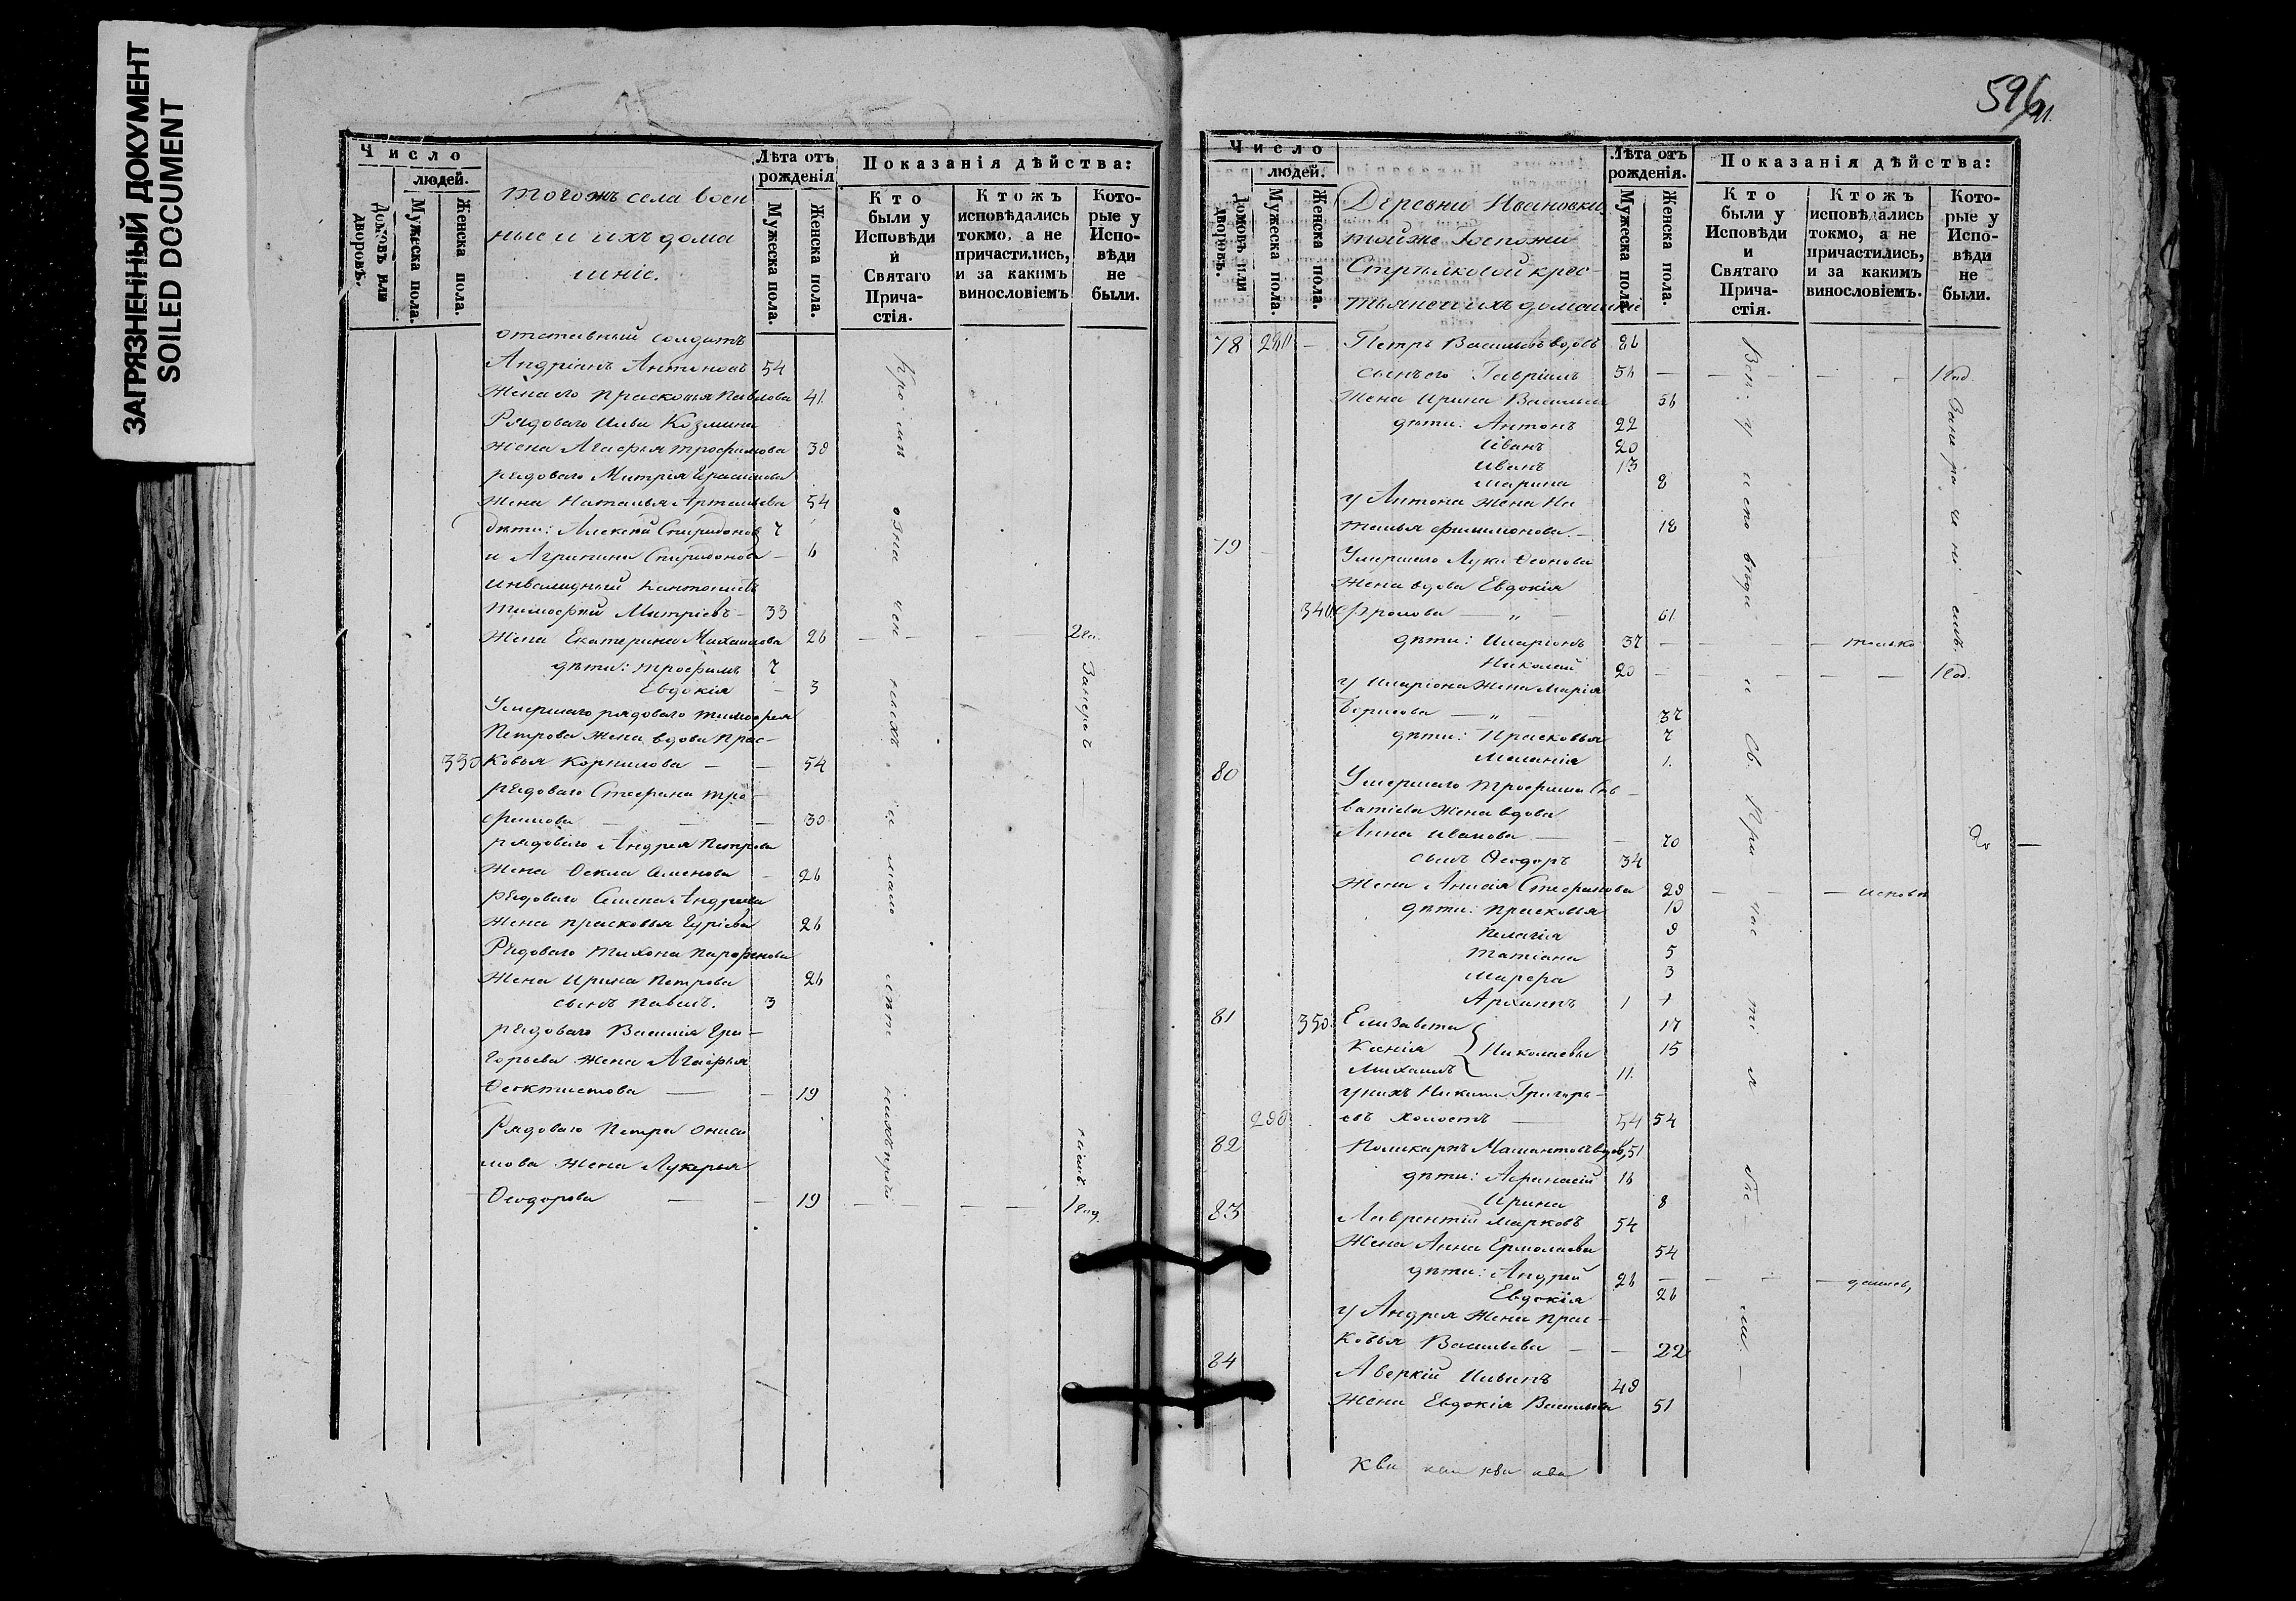 ЗАГРЯЗНЕННЫЙ ДОКУМЕНТ
SOILED DOCUMENT
Число
людей.
Домовъ или дворовъ.
Мужеска пола.
Женска пола.
тогожъ села воен
ные и ихъ дома
шніе.
Лѣта отъ рожденія
Мужеска пола.
Женска пола.
Показанія дѣйства:
Кто были у Исповѣди и Святаго Прича-стія.
Ктожъ исповѣдались токмо, а не причастились, и за какимъ винословіемъ
Кото-рые у Испо-вѣди не были.
отставный солдатъ
Андріанъ Антоновъ 54
Жена его Прасковья Павлова 41
Рядоваго Ильи Козмина
жена Агафья Трофимова 39
рядоваго Митрія Герасимова
Жена Наталья Артемьева 54
дѣти: Алексѣй Спиридоновъ 7
и Агрипина Спиридонова - 6
инвалидный
Тимофей Митріевъ - 33
Жена Екатерина Михаилова 26 — — — 2 го.
дѣти: Трофимъ 7
Евдокія - 3
Умершаго рядоваго Тимофея
Петрова жена вдова Прас-
330 ковья Корнилова — — 54
рядоваго Стефана Тро-
фимова — — — 30
рядоваго Андрея Петрова
Жена Фекла Семенова - 26
рядоваго Семена Андреева
Жена Прасковья Гуріева 26
Рядоваго Тихона Парфенова
Жена Ирина Петрова 26
сынъ Павелъ. 3
рядоваго Василія Гри-
горьева жена Агафья
Феоктистова — - 19
Рядоваго Петра Ониси
мова Жена Лукерья
Феодорова — — 19 — — — — 1 год.
596
Число
людей.
Домовъ или дворовъ.
Мужеска пола.
Женска пола.
Деревни Ивановки
тойже Госпожи
Стрѣлковой крес-
тьяне и ихъ домашніе
Лѣта отъ рожденія.
Мужеска пола.
Женска пола.
Показанія дѣйства:
Кто были у Исповѣди и Святаго Прича-стія.
Ктожъ исповѣдались токмо, а не причастились, и за какимъ винословіемъ.
Кото-рые у Испо-вѣди не были.
78 — Петръ Васильевъ вдовъ
сынъ его Гавріилъ 56 — — — — 1 год.
Жена Ирина Васильева 56
дѣти: Антонъ 22
Иванъ 20
Иванъ 13
Марина 8
у Антона жена На
талья Филимонова — 18
79 Умершаго Луки Феонова
Жена вдова Евдокія
340 Фролова — „ — 61
дѣти: Иларіонъ 37 — — — — только
Николай 20 — — — — — 1 год.
у Иларіона жена Марія
Борисова — „ — 37
дѣти: Прасковья 7
Меланія 1.
80 Умершаго Трофима Са-
ватіева Жена вдова
Анна Иванова — — 70
сынъ Феодоръ 34
Жена Анисія Стефанова 29 — — — исповѣ
дѣти: Прасковья 10
Пелагія 9
Татіана 5
Марфа 3
Архипъ 1 1
81 350. Елизавета 17
Ксенія } Николаевы 15
Михаилъ 11.
у нихъ Никита Григорь-
290 евъ холостъ — 54 54
82 Поликарпъ Мамонтовъ вдовъ, 51
дѣти: Афанасій 16
Ирина 8
83 Лаврентій Марковъ 54
Жена Анна Ермолаева 54
дѣти: Андрей 26 — — — — дались,
Евдокія 26
у Андрея жена Прас-
ковья Васильева — — 22
84 Аверкій Ивановъ 49
Жена Евдокія Васильева 51